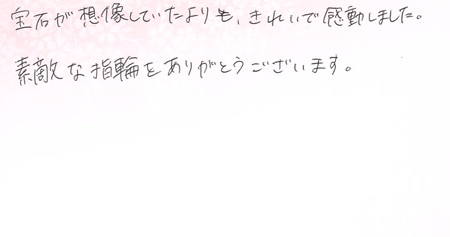 宝石が想像していたよりも、きれいで感動しました。
素敵な指輪をありがとうございます。